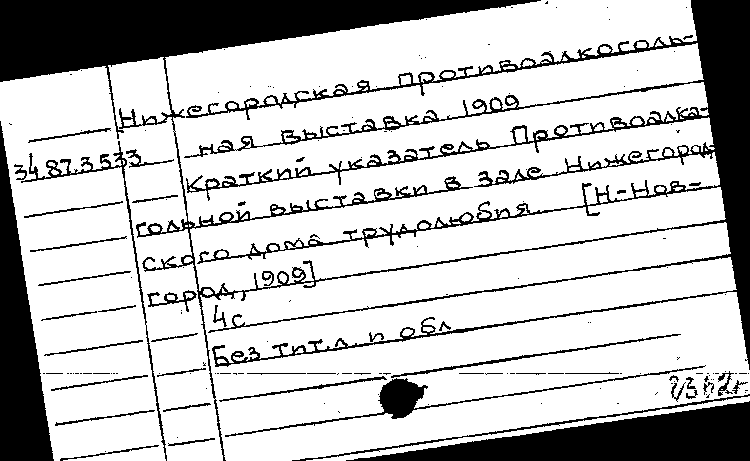 Нижегородская противоалкоголь-
ная выставка. 1909
34.87.3.533.
Краткий указатель Противоалка-
гольной выставки в зале Нижегород-
ского дома трудолюбия. [Н.-Нов-
город, 1909]
4с
Без тит. л. и обл.